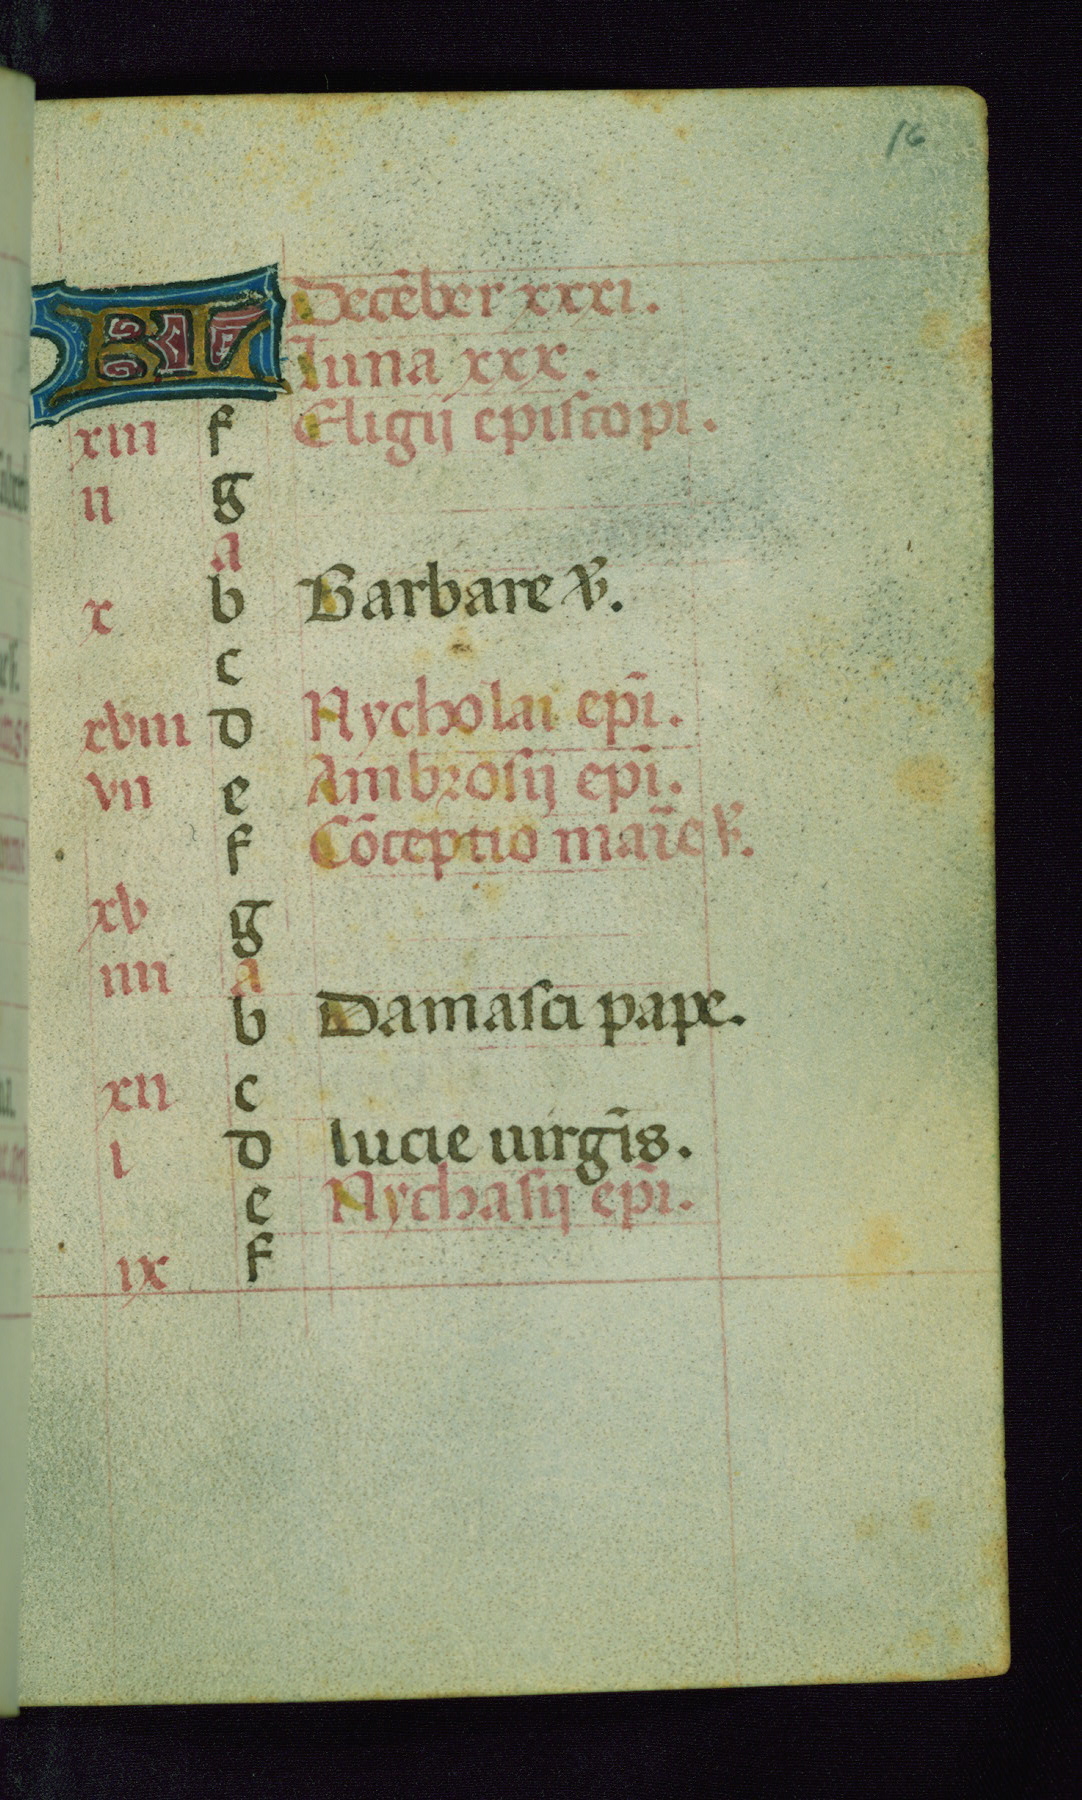 16
KL Decēber xxxi.
luna xxx.
xiii f Eligij episcopi.
ii g
a
x b Barbare v̄.
c
xviii d Nycholai ep̄i.
vii e Ambrosij ep̄i.
f Cōceptio marīe v̄.
xv g
iiii a
b Damasci pape.
xii c
i d lucie uirgīs.
e Nychasij ep̄i.
ix f